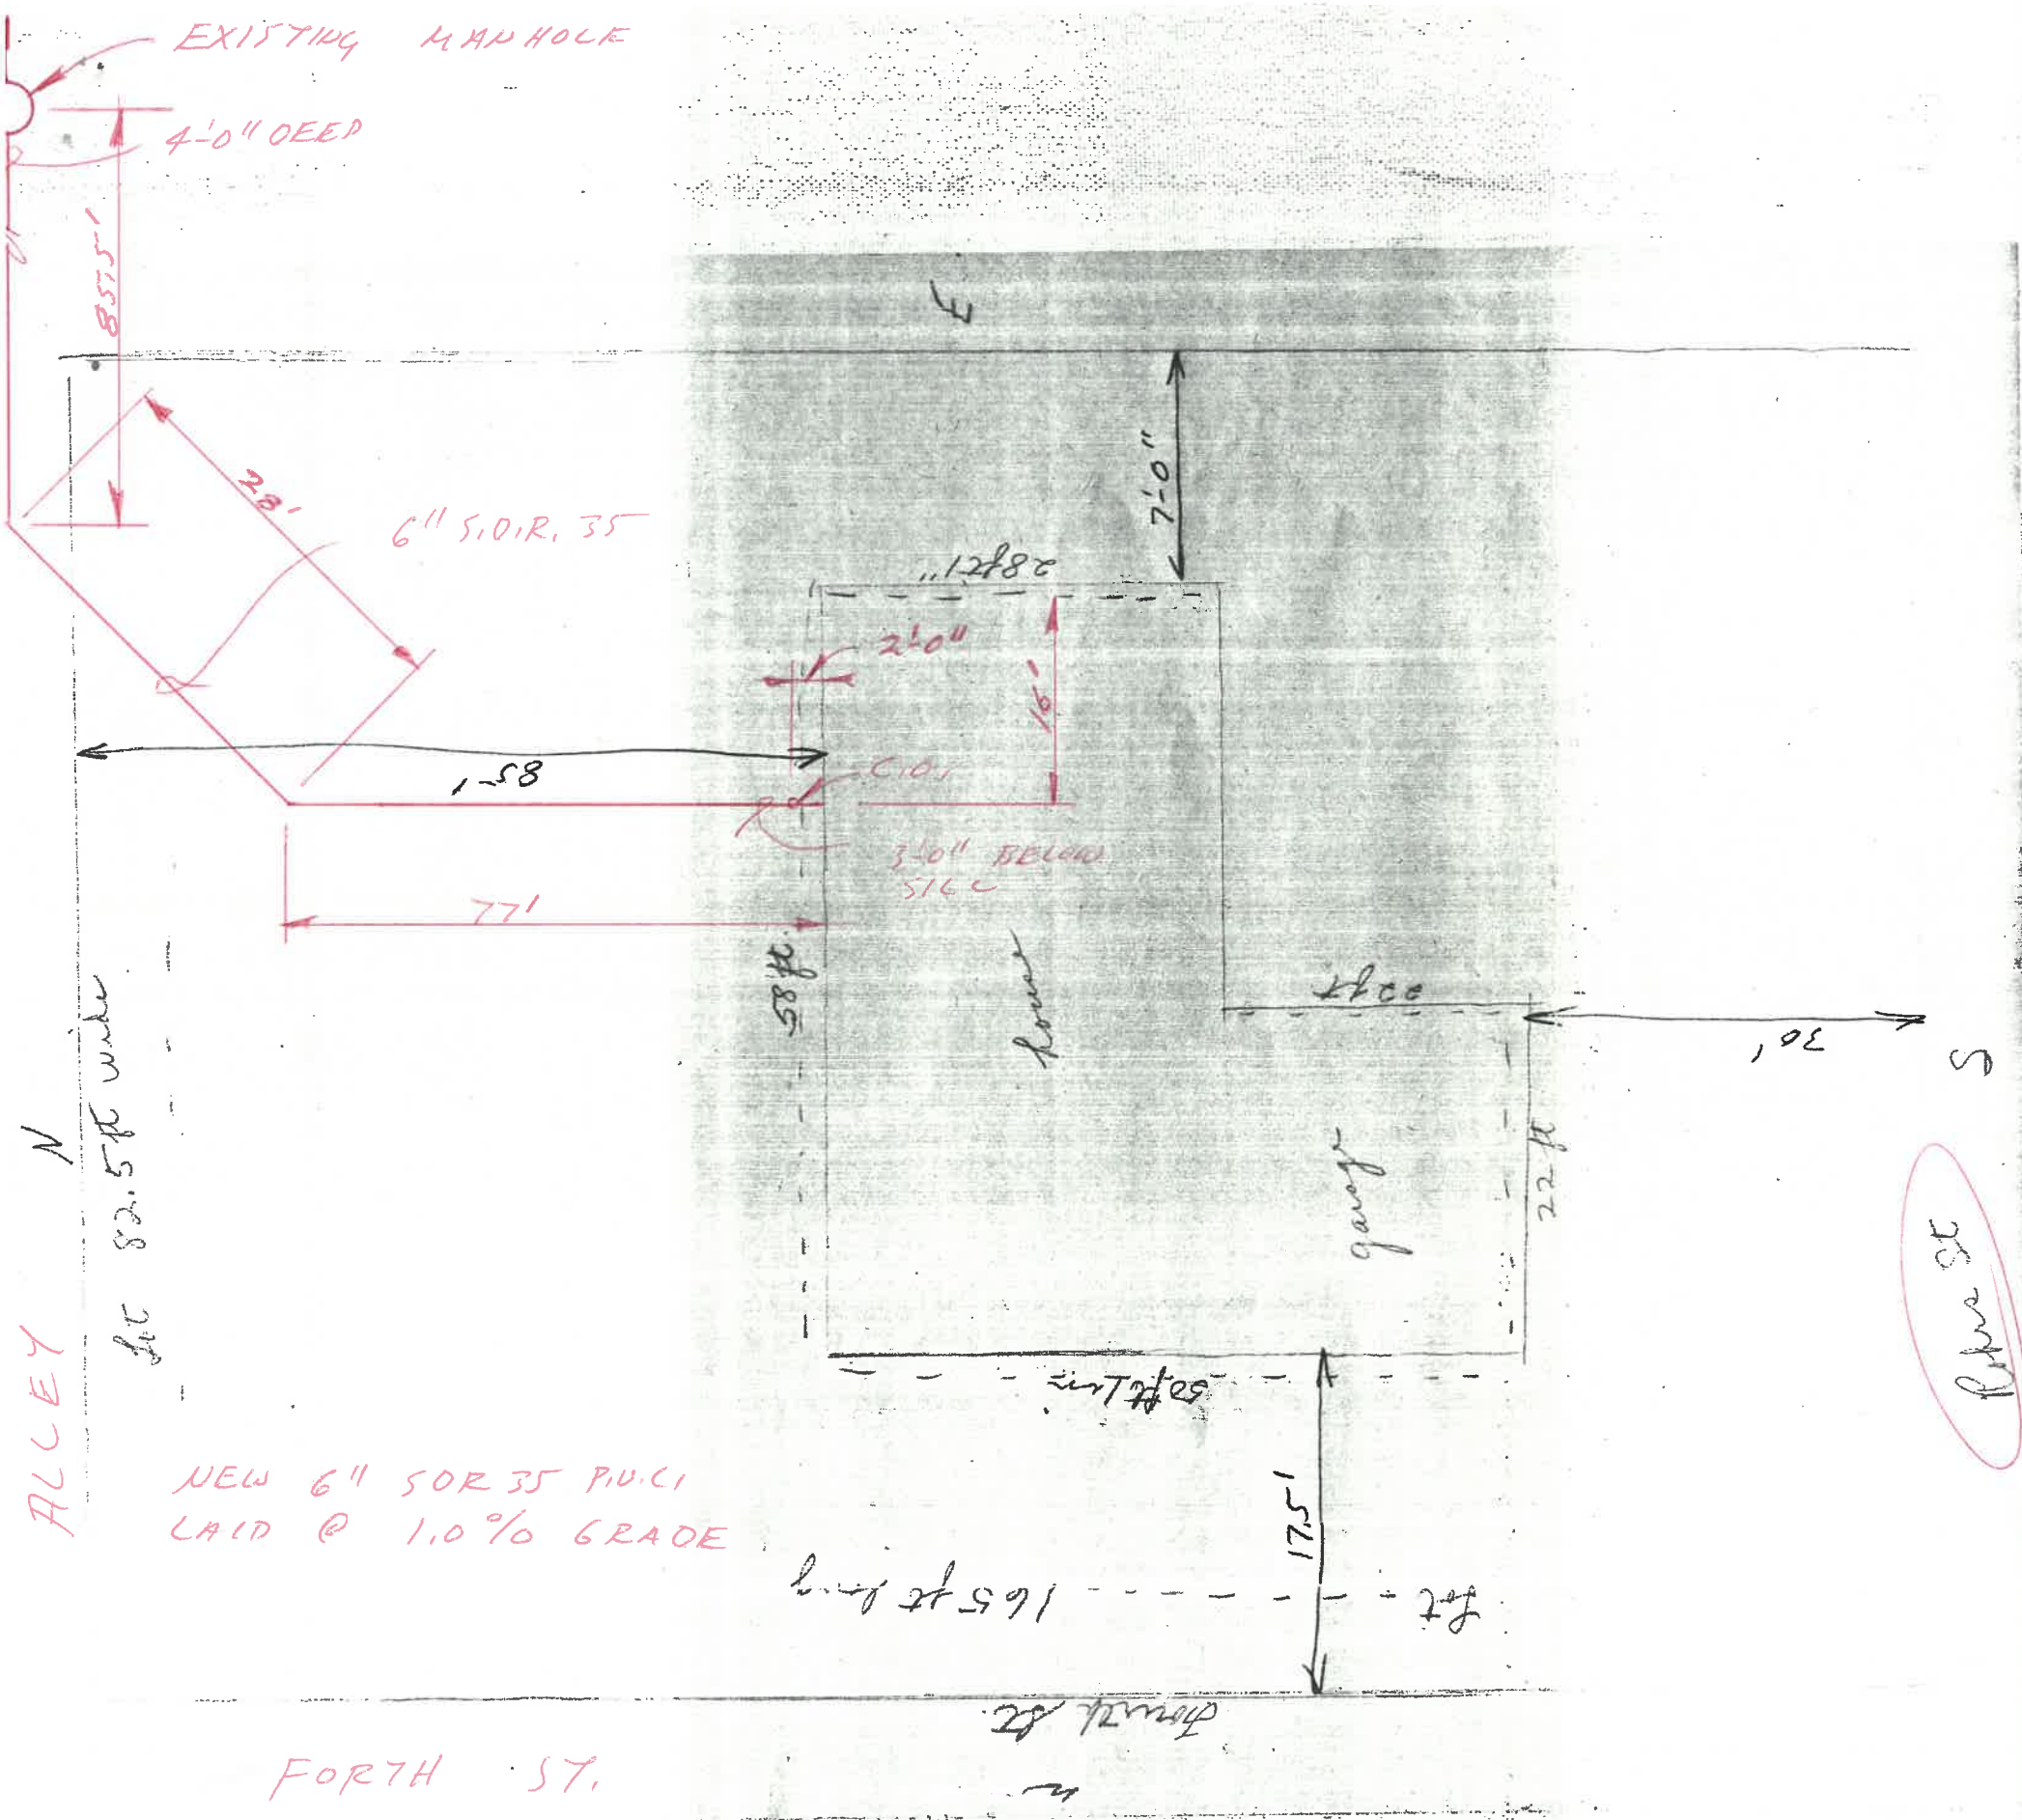 EXISTING MANHOLE
4'-0" DEEP
85.5'
E
28'
6" S.D.R. 35
7'-0"
28ft 1"
2'-0"
16'
85'
C.O.
3'-0" BELOW
SILL
77'
58 ft.
house
22 ft
30'
S
N
Lot 82.5 ft wide
ALLEY
garage
22 ft
St
50 ft
NEW 6" SDR 35 P.V.C.
LAID @ 1.0% GRADE
17.5'
Lot - - - - - - 165 ft long
Fourth St.
FORTH ST.